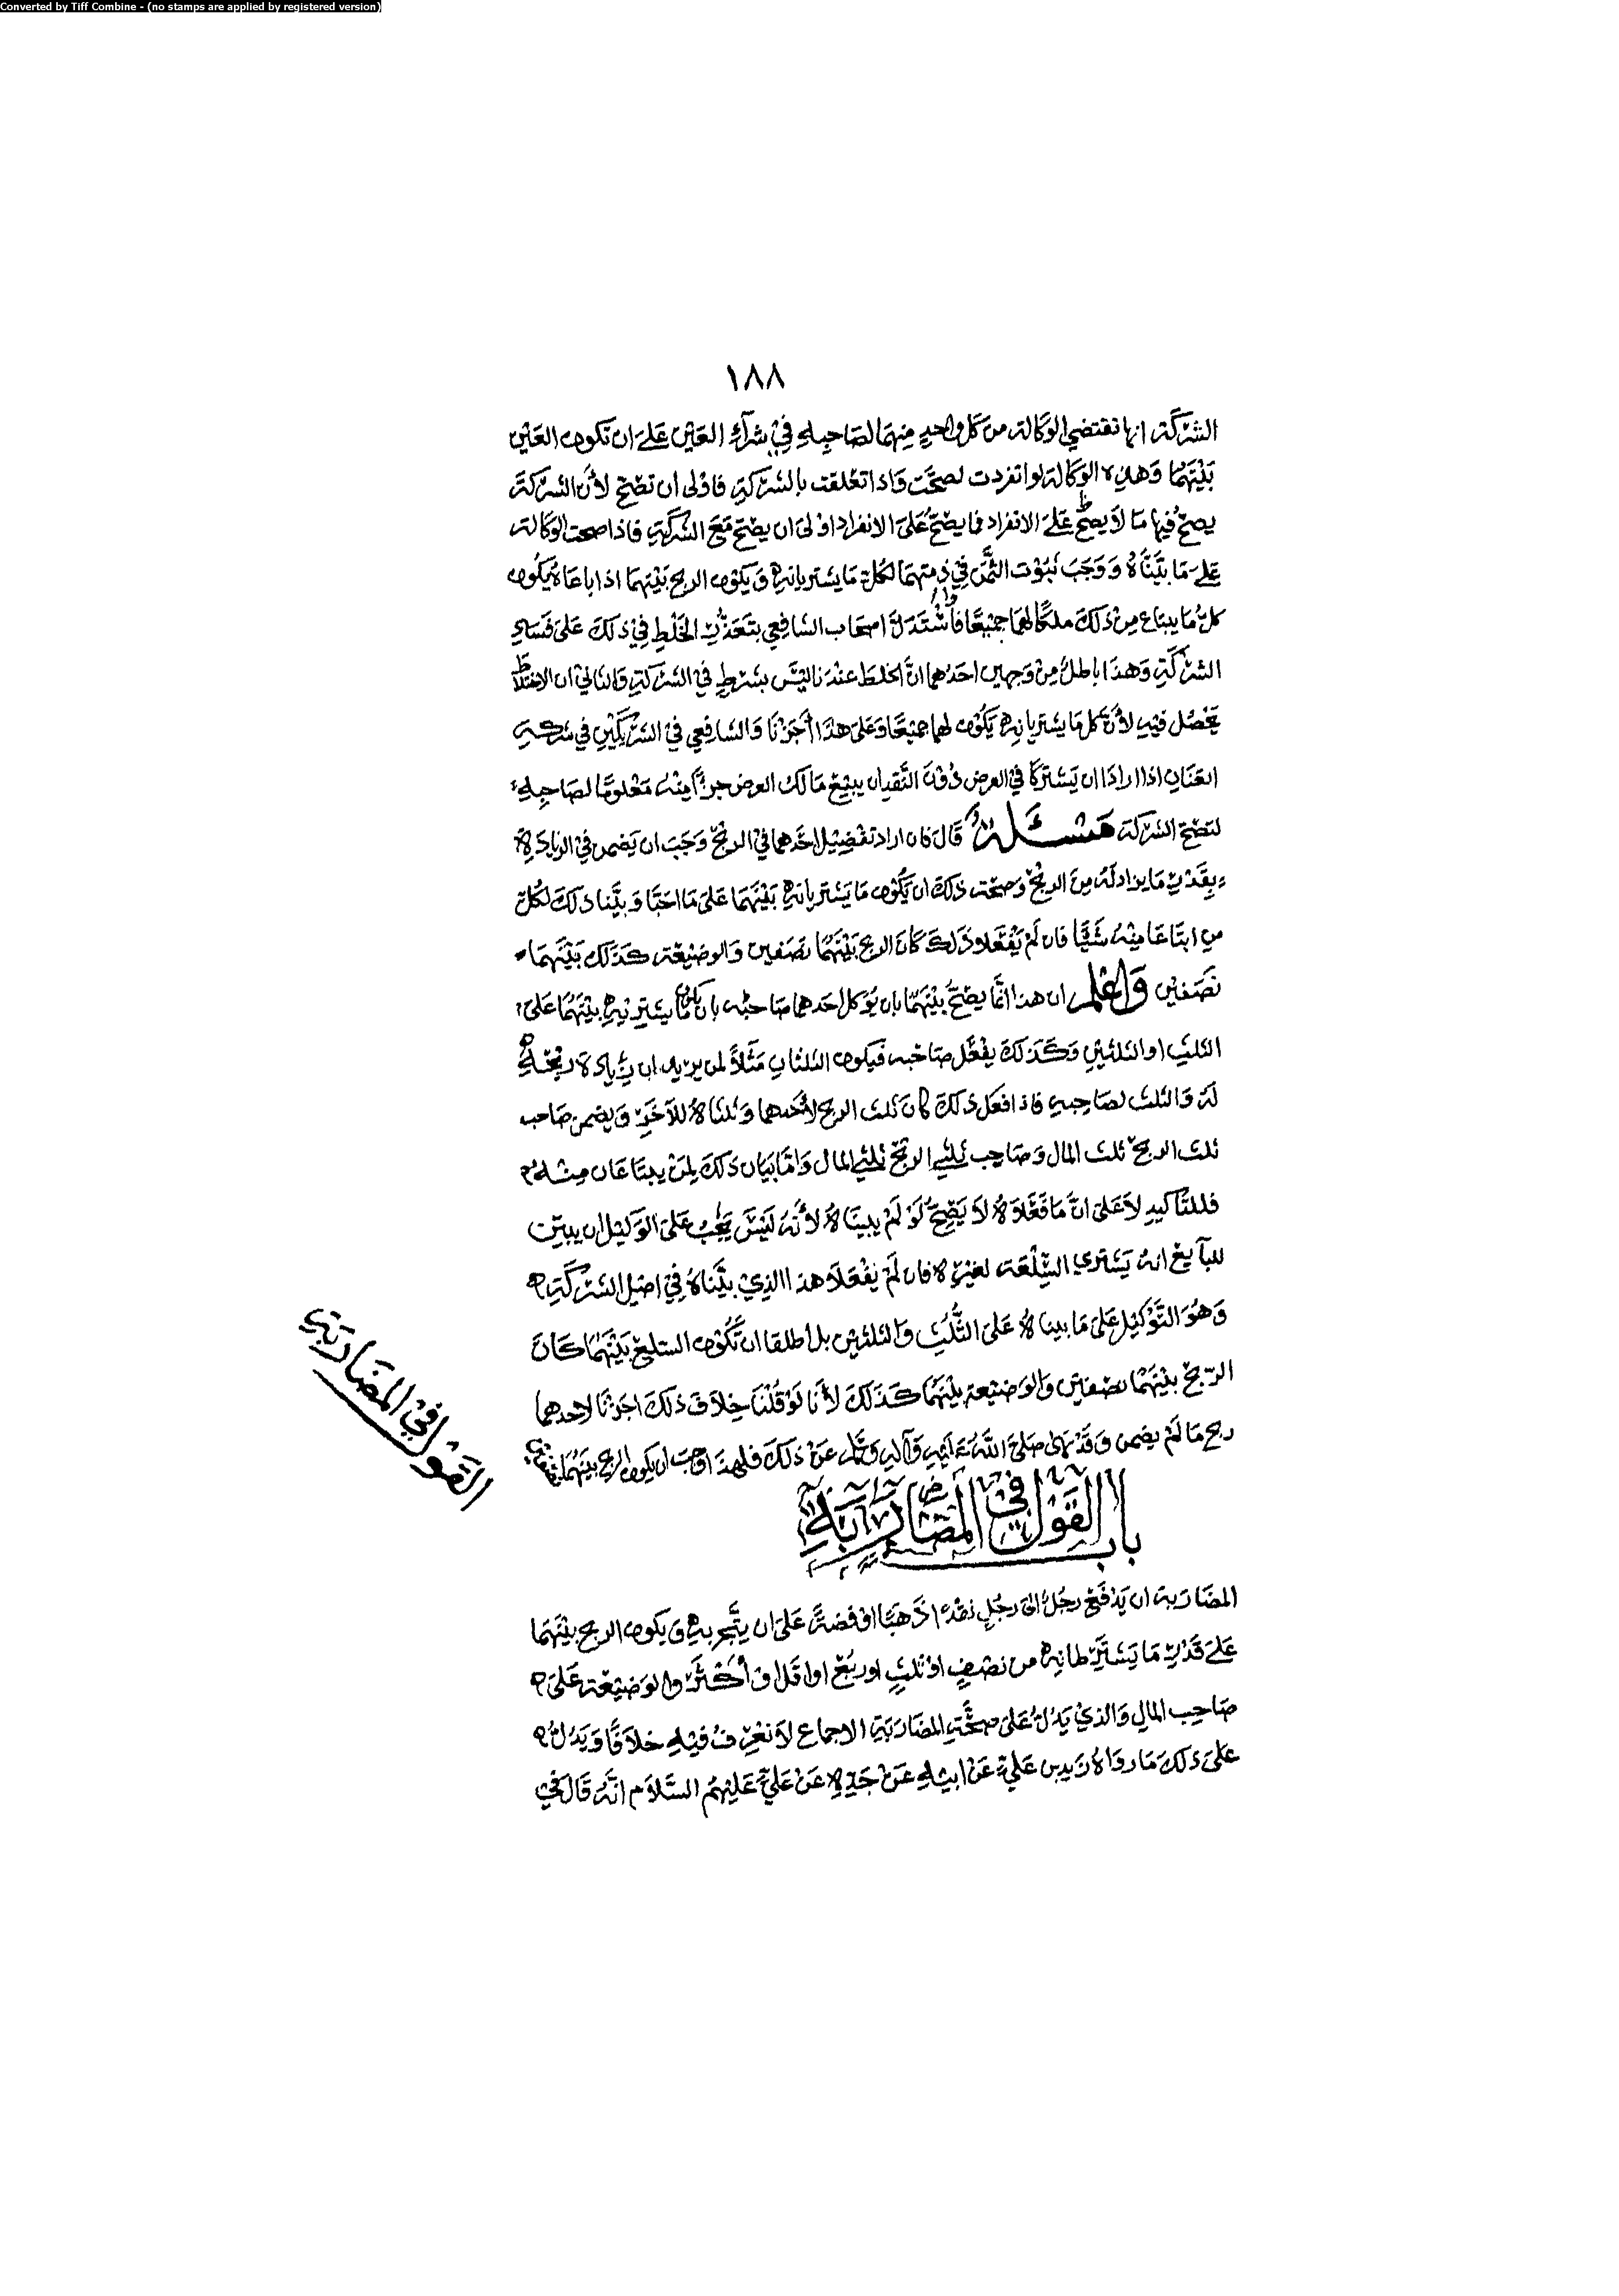 Converted by Tiff Combine - (no stamps are applied by registered version)
١٨٨
الشركة انها تقتضي الوكالة من كل واحدٍ منهما لصاحبه في شراء العين على ان تكون العين
بينهما وهذه الوكالة لو انفردت لصحت واذا تعلقت بالشركة فاولى ان تصح لأن الشركة
يصح فيها ما لا يصح على الانفراد فما يصح على الانفراد اولى ان يصح مع الشركة فاذا صحت الوكالة
على ما بيناه ووجب ثبوت الثمن في ذمتهما لكل ما يشتريانه ويكون الربح بينهما اذا باعاه يكون
كل ما يبتاع من ذلك ملكًا لهما جميعًا فاستدل اصحاب الشافعي بتعذر الخلط في ذلك على فساد
الشركة وهذا باطل من وجهين احدهما ان الخلط عندنا ليس بشرط في الشركة والثاني ان الاختلاط
يحصل فيه لأن كل ما يشتريانه يكون لهما جميعًا وعلى هذا أجزنا والشافعي في الشريكين في شركة
العنان اذا ارادا ان يشتركا في العرض دون النقد ان يبيع مالك العرض جزأ منه معلومًا لصاحبه
لتصح الشركة مسئلة قال فان اراد تفضيل احدهما في الربح وجب ان يضمن في الزيادة
بقدر ما يزاد له من الربح وصحت ذلك ان يكون ما يشتريانه بينهما على ما احبا وبينا ذلك لكل
من ابتاعا منه شيًا فان لم يفعلا ذلك كان الربح بينهما نصفين والوضيعة كذلك بينهما
نصفين واعلم ان هذا انما يصح بينهما بان يوكل احدهما صاحبه بان يكون ما يشتريه بينهما على
الثلث او الثلثين وكذلك يفعل صاحبه فيكون الثلثان مثلاً لمن يريد ان زيادة ربحه
له والثلث لصاحبه فاذا فعل ذلك كان ثلث الربح لأحدهما وثلثاه للآخر ويضمن صاحب
ثلث الربح ثلث المال وصاحب ثلثي الربح ثلثي المال واما بيان ذلك لمن يبتاعان منه
فللتاكيد لا على ان ما فعلاه لا يصح لو لم يبيناه لأنه ليس يجب على الوكيل ان يبين
للبآيع انه يشتري السلعة لغيره فان لم يفعلا هذا الذي بيناه في اصل الشركة
وهو التوكيل على ما بيناه على الثلث والثلثين بل أطلقا ان تكون السلع بينهما كان
الربح بينهما نصفين والوضيعة بينهما كذلك لأنا لو قلنا خلاف ذلك اجزنا لاحدهما
ربح ما لم يضمن وقد نهى صلى الله عليه وآله وسلم عن ذلك فلهذا وجب ان يكون الربح بينهما نصفين
القول في المضاربة
باب القول في المضاربة
المضاربة ان يدفع رجل الى رجل نقدًا ذهبًا او فضة على ان يتجر به ويكون الربح بينهما
على قدر ما يشترطانه من نصف او ثلث او ربع او اقل او أكثر والوضيعة على
صاحب المال والذي يدل على صحة المضاربة الاجماع لا نعرف فيه خلافًا ويدل
على ذلك ما رواه زيد بن علي عن ابيه عن جده عن علي عليهم السلام انه قال في